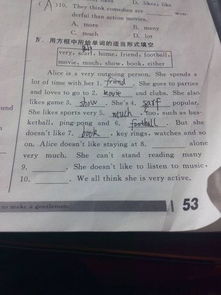 D. likes
110. They think comedies are
derful than action movies.
A. more B. many
C. much D. lot
用方框中所给单词的适当形式填空
very, surf, home, friend, football,
movie, much, show, book, either
Alice is a very outgoing person. She spends a
lot of time with her 1. friend. She goes to parties
and loves to go to 2. movie and clubs. She also
likes game 3. show. She's 4. surf popular.
She likes sports very 5. much, too, such as bas-
ketball, ping-pong and 6. football. But she
doesn't like 7. book, key rings, watches and so
on. Alice doesn't like staying at 8. alone
very much. She can't stand reading many
9. . She doesn't like to listen to music,
10. . We all think she is very active.
53
to make a gentleman.